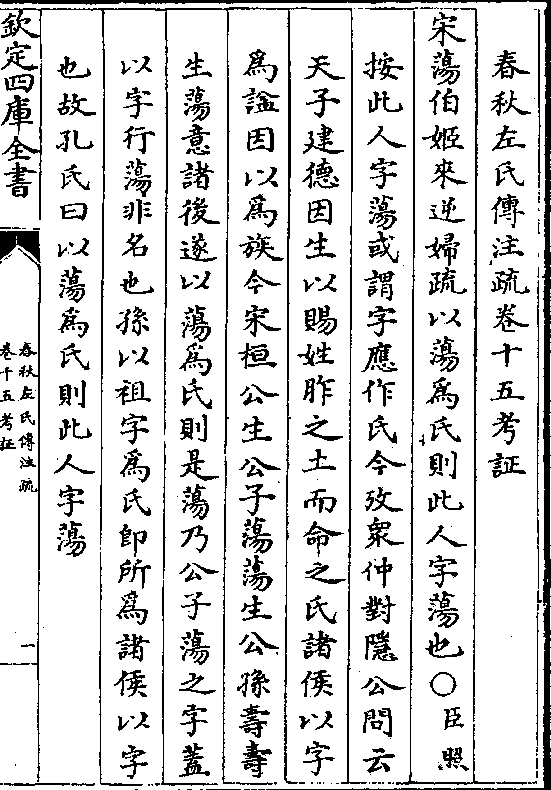 春秋左氏傳注疏卷十五考証
宋蕩伯姬來逆婦疏以蕩爲氏則此人字蕩也〇臣照
按此人字蕩或謂字應作氏今攷衆仲對隱公問云
天子建德因生以賜姓胙之土而命之氏諸侯以字
爲諡因以爲族今宋桓公生公子蕩蕩生公孫壽壽
生蕩意諸後遂以蕩爲氏則是蕩乃公子蕩之字蓋
以字行蕩非名也孫以祖字爲氏即所爲諸侯以字
也故孔氏曰以蕩爲氏則此人字蕩
欽定四庫全書
春秋左氏傳注疏
卷十五考証
一